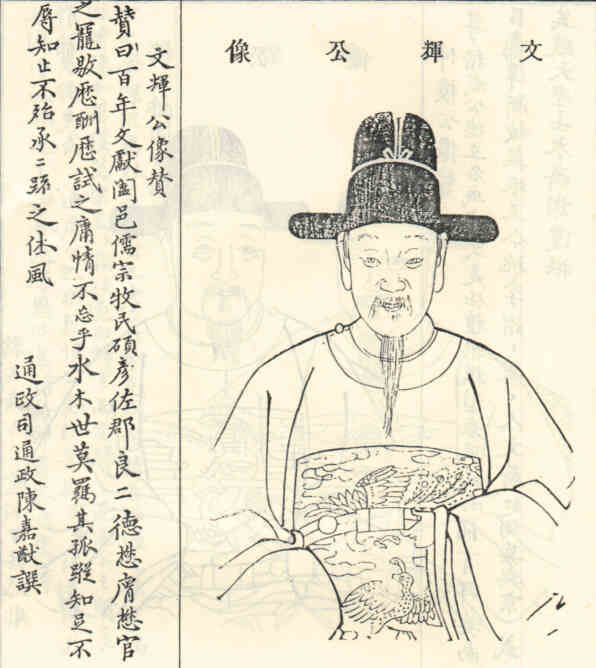 文輝公像
文輝公像賛
賛曰百年文獻闔邑儒宗牧民碩彥佐郡良二德懋膺懋官
之寵敭歷酬歷試之庸情不忘乎水木世莫羈其孤蹤知足不
辱知止不殆承二疏之仕風
通政司通政陳嘉猷譔